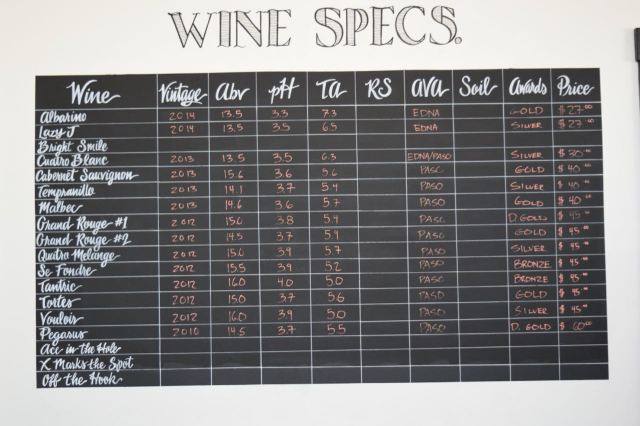 WINE SPECS.
Wine Vintage Abv pH TA RS AVA Soil Awards Price
Albarino 2014 13.5 3.3 7.3 EDNA GOLD $27.00
Lazy J 2014 13.5 3.5 6.5 EDNA SILVER $27.00
Bright Smile
Cuatro Blanc 2013 13.5 3.5 6.3 EDNA/PASO SILVER $30.00
Cabernet Sauvignon 2013 15.6 3.6 5.6 PASO GOLD $40.00
Tempranillo 2013 14.1 3.7 5.4 PASO SILVER $40.00
Malbec 2013 14.6 3.6 5.7 PASO GOLD $40.00
Grand Rouge #1 2012 15.0 3.8 5.4 PASO D. GOLD $45.00
Grand Rouge #2 2012 14.5 3.7 5.9 PASO GOLD $45.00
Quatro Melange 2012 15.0 3.9 5.7 PASO SILVER $45.00
Se Fondre 2012 15.5 3.9 5.2 PASO BRONZE $45.00
Tantric 2012 16.0 4.0 5.0 PASO BRONZE $45.00
Tortes 2012 15.0 3.7 5.6 PASO GOLD $45.00
Voulois 2012 16.0 3.9 5.0 PASO SILVER $45.00
Pegasus 2010 14.5 3.7 5.5 PASO D. GOLD $60.00
Ace in the Hole
X Marks the Spot
Off the Hook